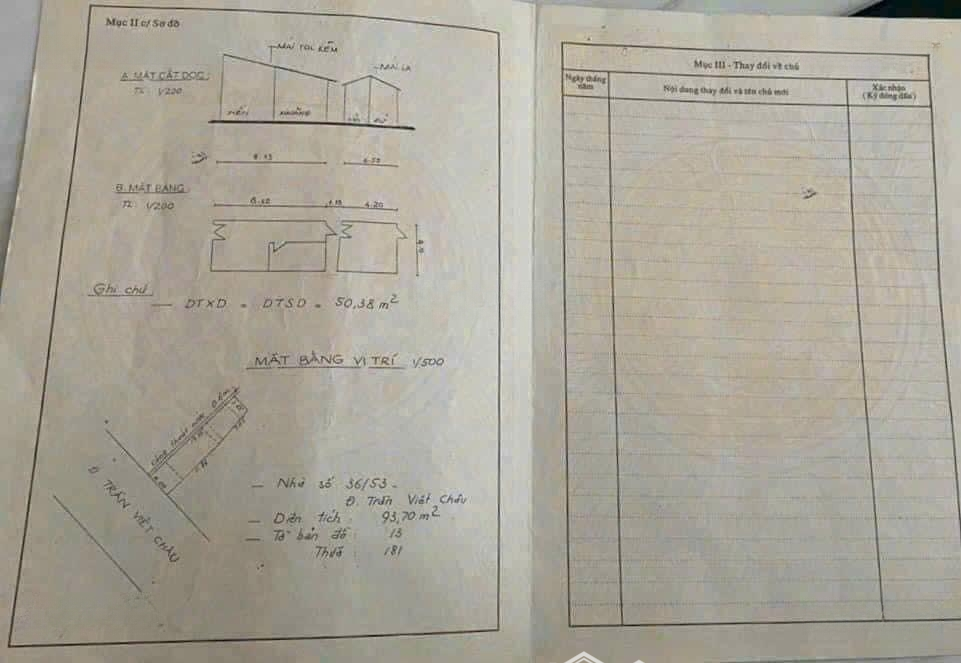 Mục II c/ Sơ đồ
MÁI TOL KẼM
MÁI LÁ
A. MẶT CẮT DỌC:
TL: 1/200
8.15
B. MẶT BẰNG:
TL: 1/200
4.20
Ghi chú
— DTXD = DTSD = 50,38 m²
MẶT BẰNG VỊ TRÍ 1/500
Cống thoát nước
Đ TRẦN VIẾT CHÂU
— Nhà số 36/53 -
Đ. Trần Viết Châu
— Diện tích : 93,70 m²
— Tờ bản đồ : 13
Thửa : 181
Mục III - Thay đổi về chủ
Ngày tháng năm
Nội dung thay đổi và tên chủ mới
Xác nhận
(Ký đóng dấu)